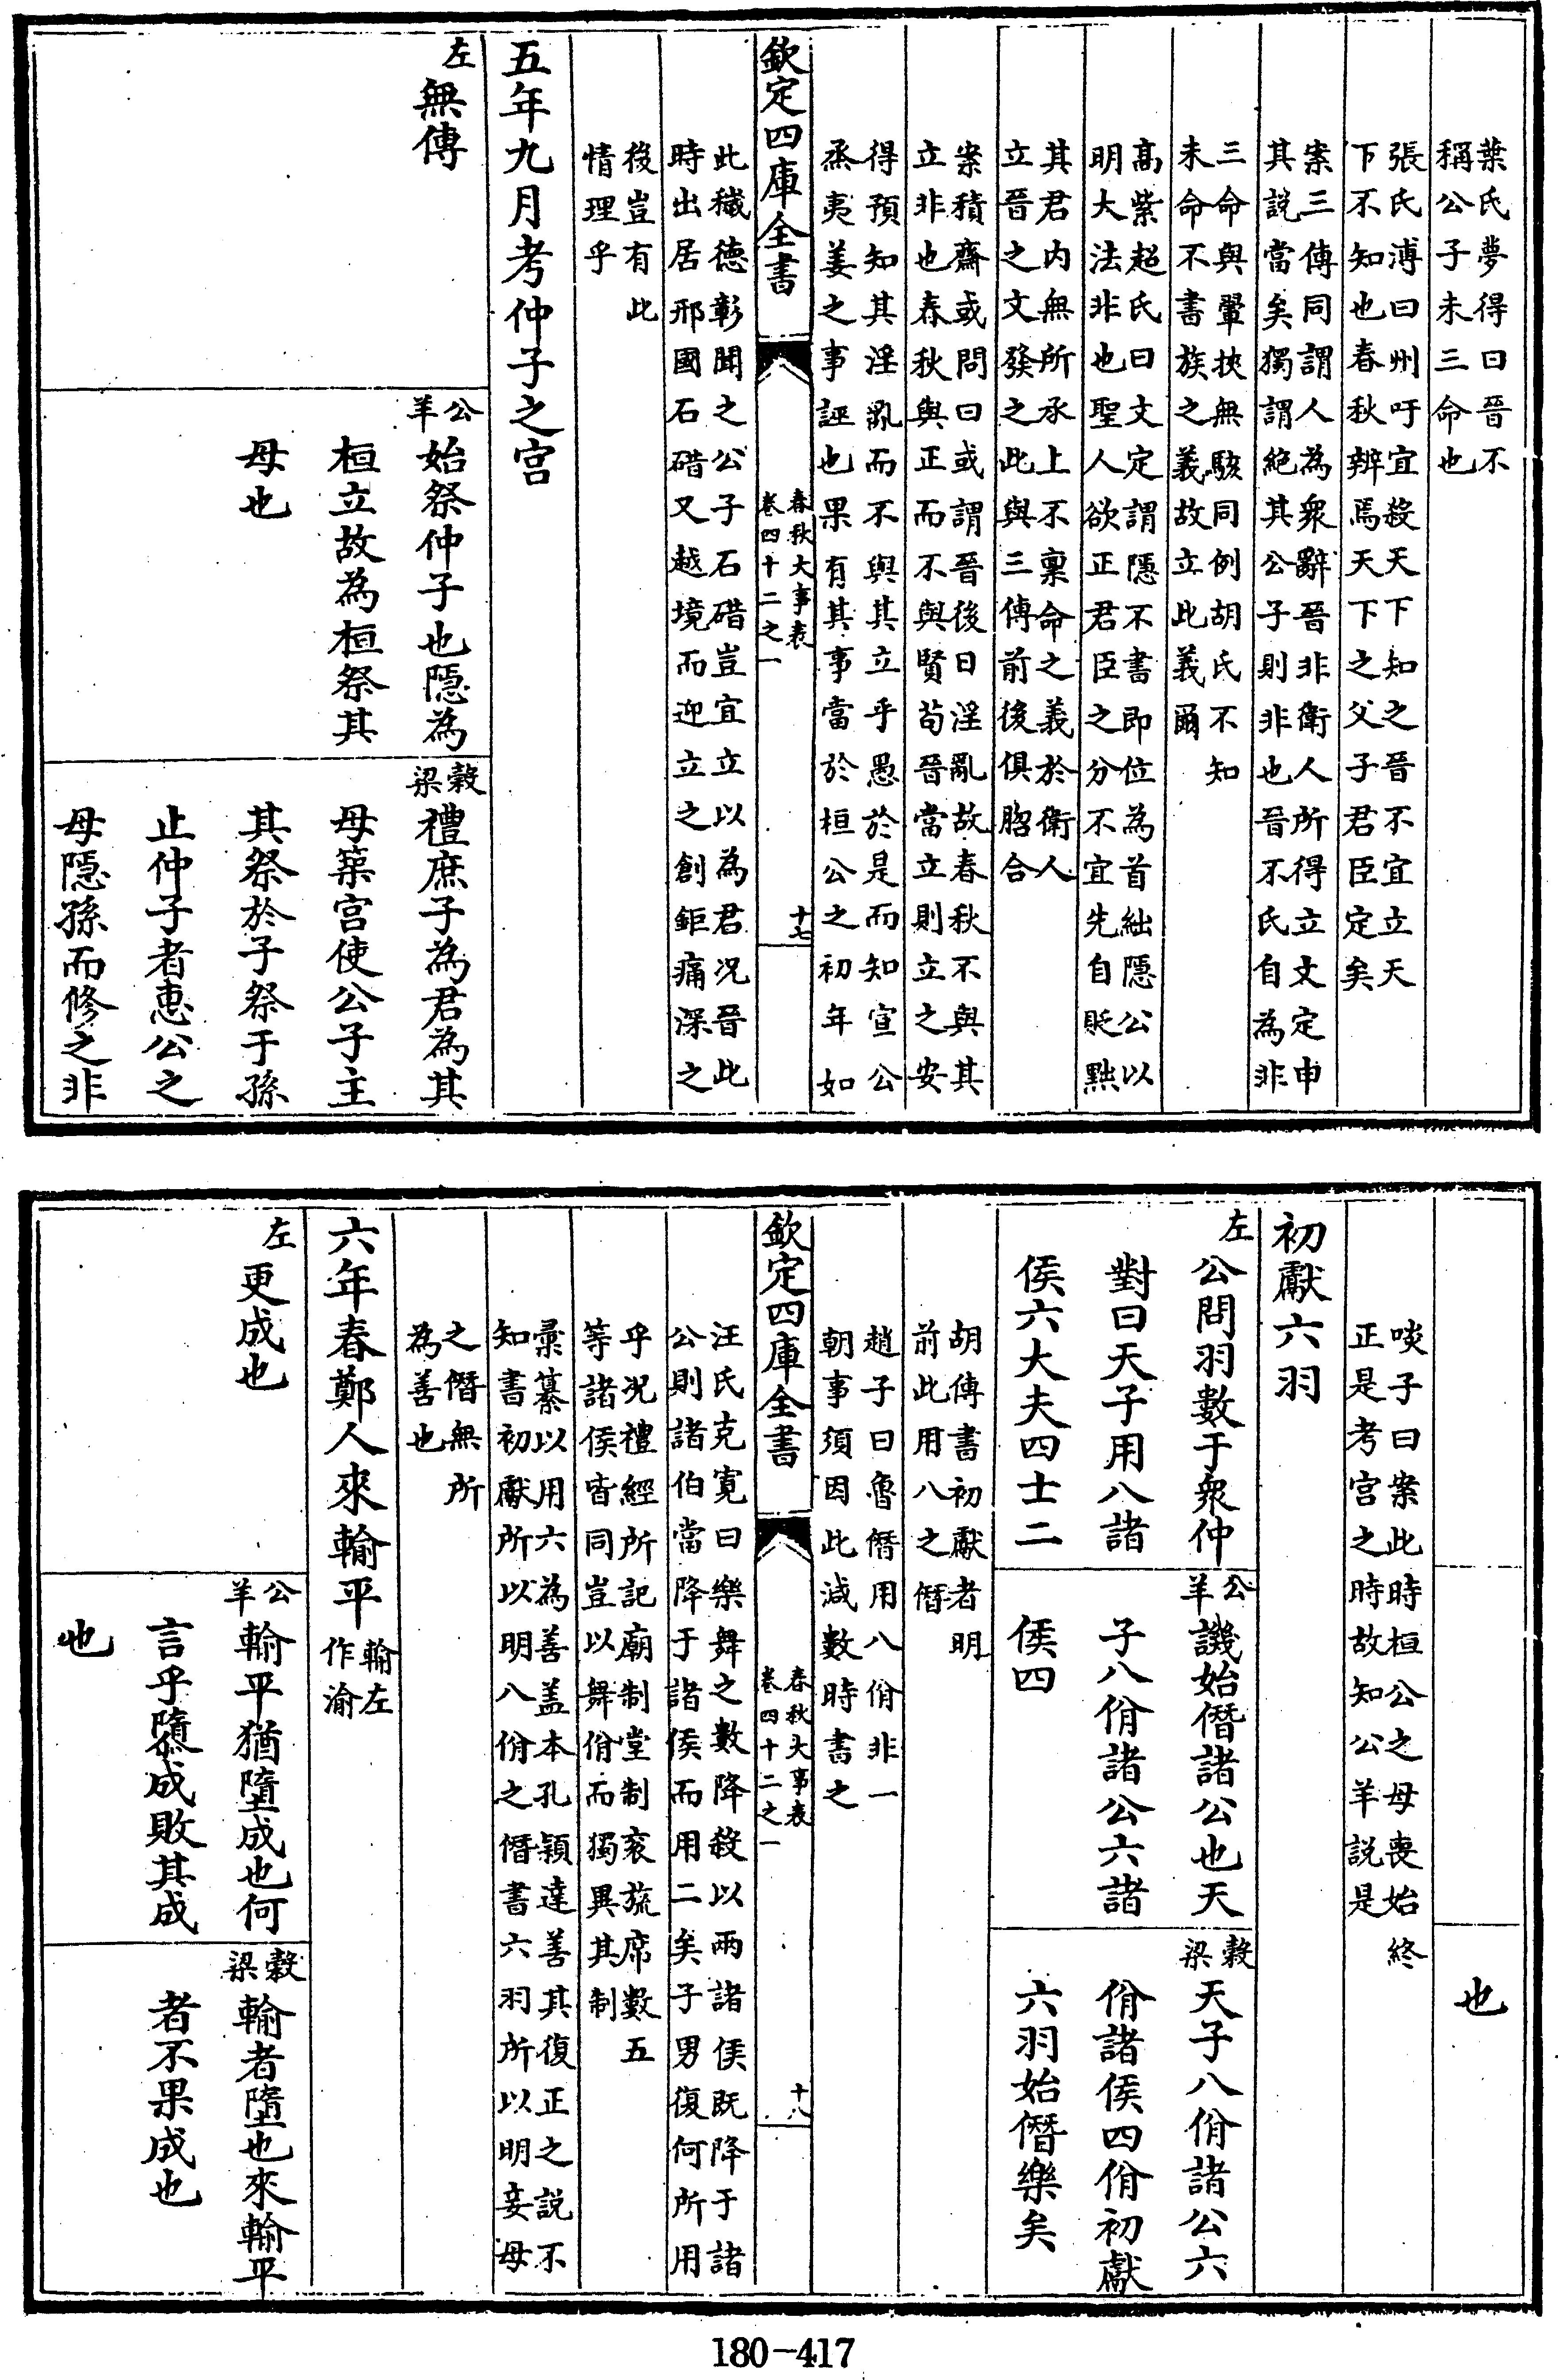 葉氏夢得曰晉不
稱公子未三命也
張氏溥曰州吁宜殺天下知之晉不宜立天
下不知也春秋辨焉天下之父子君臣定矣
案三傳同謂人為衆辭晉非衛人所得立文定申
其説當矣獨謂絶其公子則非也晉不氏自為非
三命與翬挾無駭同例胡氏不知
未命不書族之義故立此義爾
髙紫超氏曰文定謂隱不書即位為首絀隱公以
明大法非也聖人欲正君臣之分不宜先自貶黜
其君内無所承上不禀命之義於衛人
立晉之文發之此與三傳前後俱脗合
案積齋或問曰或謂晉後日淫亂故春秋不與其
立非也春秋與正而不與賢苟晉當立則立之安
得預知其淫亂而不與其立乎愚於是而知宣公
烝夷姜之事誣也果有其事當於桓公之初年如
欽定四庫全書
春秋大事表
卷四十二之一
十七
此穢德彰聞之公子石碏豈宜立以為君况晉此
時出居邢國石碏又越境而迎立之創鉅痛深之
後豈有此
情理乎
五年九月考仲子之宫
左
無傳
公羊
始祭仲子也隱為
桓立故為桓祭其
母也
穀梁
禮庶子為君為其
母築宫使公子主
其祭於子祭于孫
止仲子者惠公之
母隱孫而修之非
也
啖子曰案此時桓公之母喪始終
正是考宫之時故知公羊説是
初獻六羽
左
公問羽數于衆仲
對曰天子用八諸
侯六大夫四士二
公羊
譏始僭諸公也天
子八佾諸公六諸
侯四
穀梁
天子八佾諸公六
佾諸侯四佾初獻
六羽始僭樂矣
胡傳書初獻者明
前此用八之僭
趙子曰魯僭用八佾非一
朝事須因此減數時書之
欽定四庫全書
春秋大事表
卷四十二之一
十八
汪氏克寛曰樂舞之數降殺以兩諸侯既降于諸
公則諸伯當降于諸侯而用二矣子男復何所用
乎况禮經所記廟制堂制衮旒席數五
等諸侯皆同豈以舞佾而獨異其制
彚纂以用六為善盖本孔穎達善其復正之説不
知書初獻所以明八佾之僭書六羽所以明妾母
之僭無所
為善也
六年春鄭人來輸平
輸左
作渝
左
更成也
公羊
輸平猶墮成也何
言乎墮成敗其成
也
穀梁
輸者墮也來輸平
者不果成也
180-417